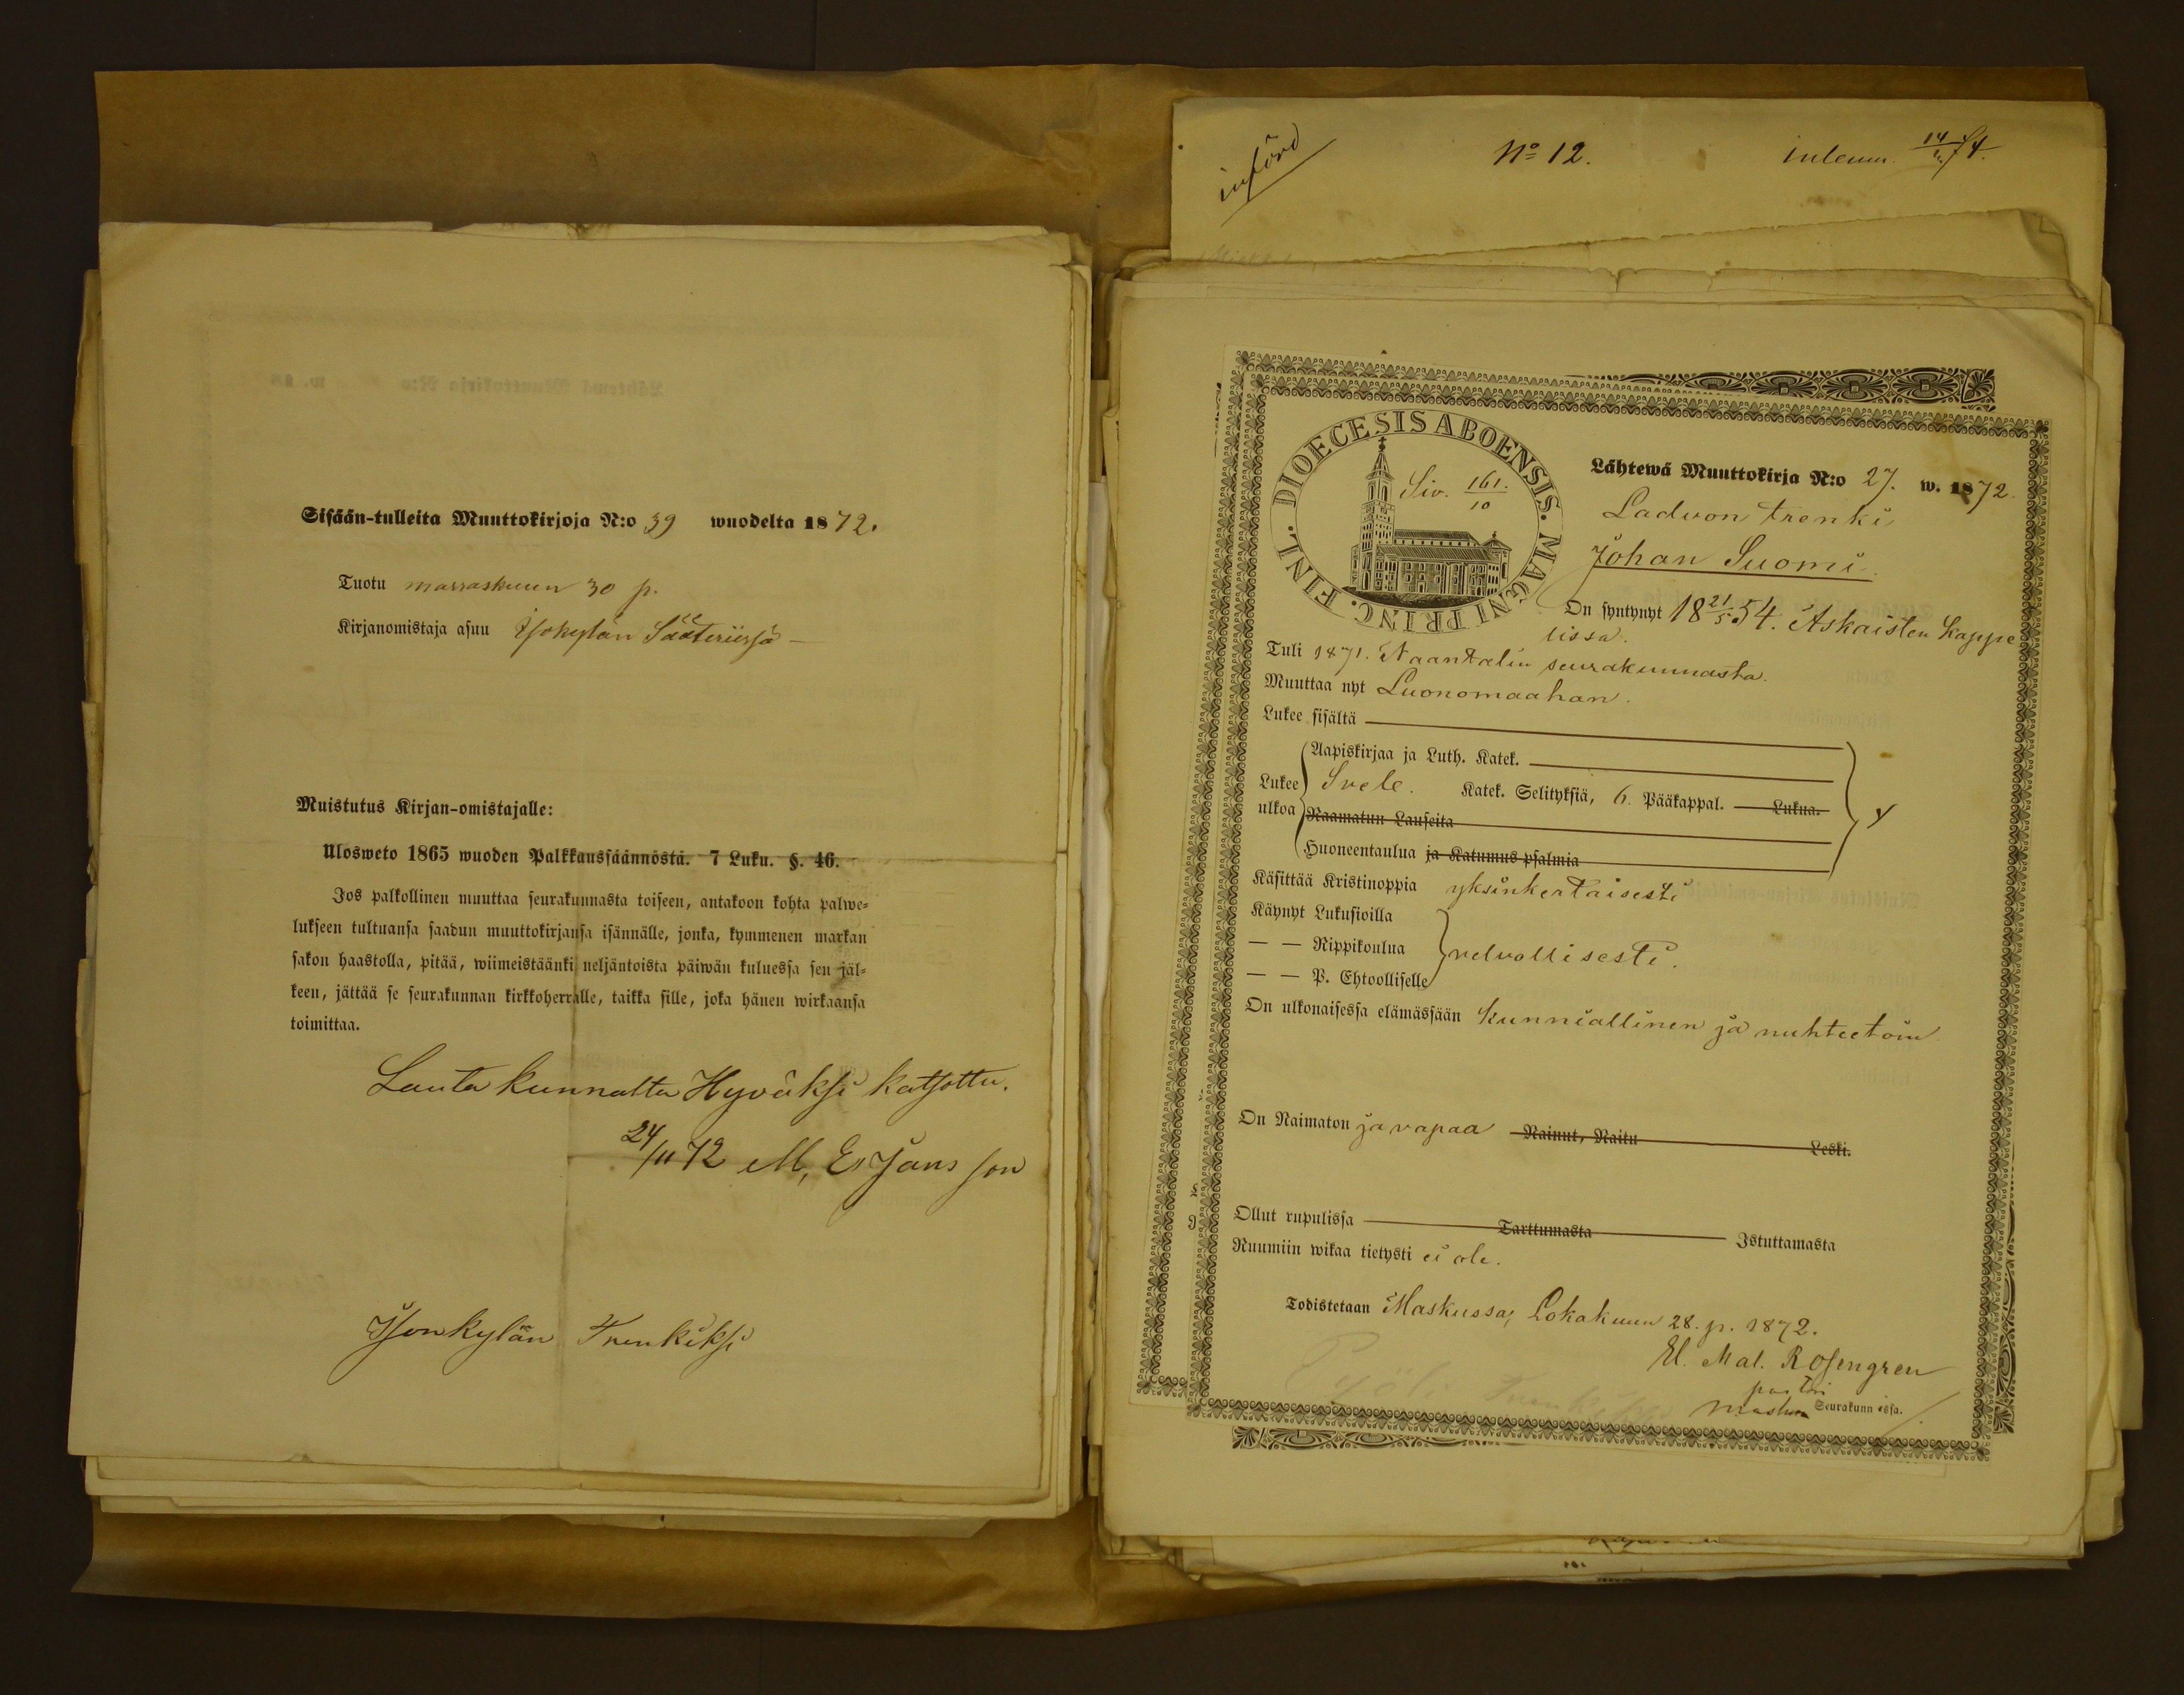 Sisään-tulleita Muuttokirjoja N:o 39 wuodelta 1872.
Tuotu marraskuun 30 p.
Kirjanomistaja asuu Isokylän Sääteriissä —
Muistutus Kirjan-omistajalle:
Ulosweto 1865 wuoden Palkkaussäännöstä. 7 Luku. §. 46.
Jos palkollinen muuttaa seurakunnasta toiseen, antakoon kohta palwe-
lukseen tultuansa saadun muuttokirjansa isännälle, jonka, kymmenen markan
sakon haastolla, pitää, wiimeistäänki neljäntoista päiwän kuluessa sen jäl-
keen, jättää se seurakunnan kirkkoherralle, taikka sille, joka hänen wirkaansa
toimittaa.
Lauta kunnalta Hyväksi katsottu.
24/11 72 M, E, Jans son
Isonkylän Trenkiksi
införd
No 12.
inlemn. 74.
DIOECESIS ABOENSIS. MAGNI PRINC. FINL.
Siv. 161./10
Lähtewä Muuttokirja N:o 27. w. 1872.
Ladvon trenki
Johan Suomi.
On syntynyt 18 21/5 54. Askaisten Kappe
lissa.
Tuli 1871. Naantalin seurakunnasta.
Muuttaa nyt Luonomaahan.
Lukee sisältä
Aapiskirjaa ja Luth. Katek.
Lukee Svele. Katek. Selityksiä, 6. Pääkappal. Lukua.
ulkoa Raamatun Lauseita
Huoneentaulua ja Katumus-psalmia
Käsittää Kristinoppia yksinkertaisesti
Käynyt Lukusioilla
— — Rippikoulua velvollisesti.
— — P. Ehtoolliselle
On ulkonaisessa elämässään kunniallinen ja nuhteetoin
On Naimaton ja vapaa Nainut, Naitu Leski.
Ollut rupulissa Tarttumasta Istuttamasta
Ruumiin wikaa tietysti ei ole.
Todistetaan Maskussa, Lokakuun 28. p. 1872.
El. Mal. Rosengren
pastori
Maskun Seurakunnassa.